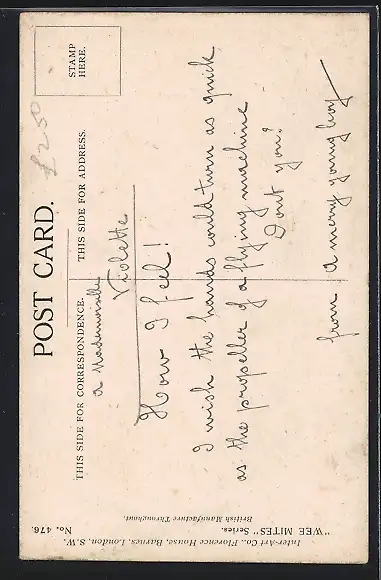 POST CARD.
THIS SIDE FOR CORRESPONDENCE.
THIS SIDE FOR ADDRESS.
STAMP
HERE.
£2.50
a Mademoiselle
Violette
How I feel!
I wish the hands could turn as quick
as the propeller of a flying machine
Dont you?
from a merry young boy
"WEE MITES" Series.
British Manufacture Throughout.
Inter-Art Co., Florence House, Barnes, London, S.W.
No. 476.